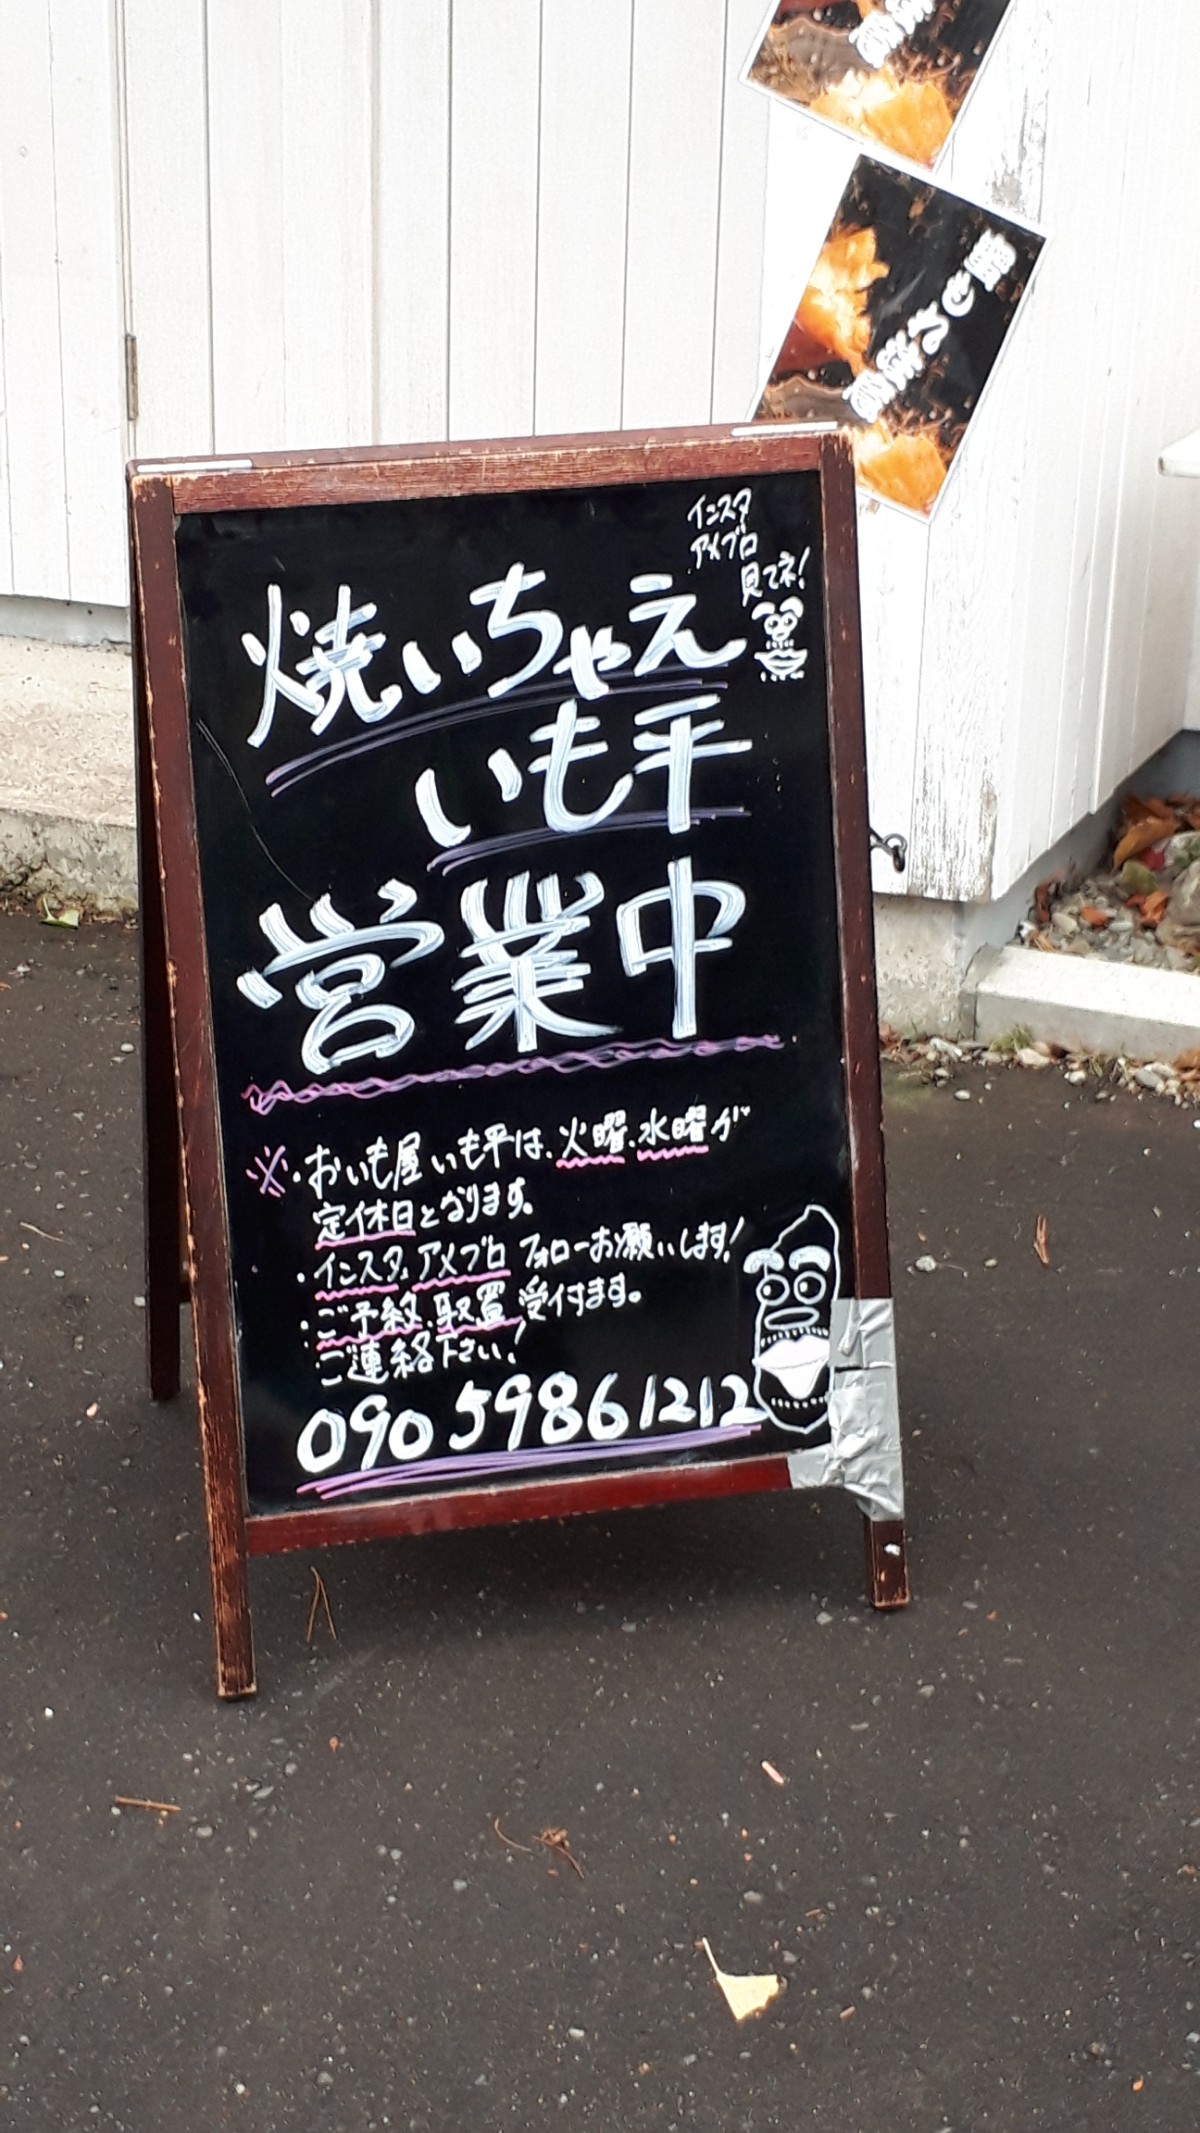 インスタ
アメブロ
見てネ!
焼いちゃえ
いも平
営業中
※・おいも屋いも平は、火曜、水曜が
定休日となります。
・インスタ、アメブロ フォローお願いします!
・ご予約、取置、受付ます。
ご連絡下さい!
090 5986 1212